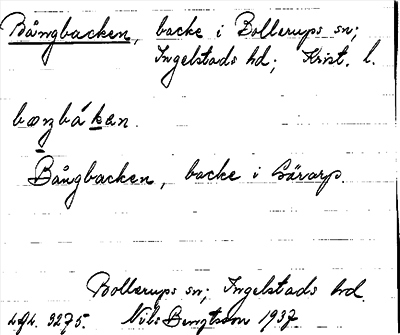 Bångbacken, backe i Bollerups sn;
Ingelstads hd; Krist. l.
Bångbacken, backe i
Bollerups sn; Ingelstads hd.
3275. Nils Bengtsson 1937